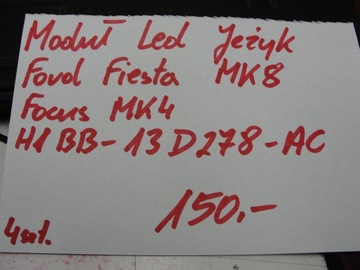 Moduł Led Jeżyk
Ford Fiesta MK8
Focus MK4
H1BB-13D278-AC
150,-
4szt.